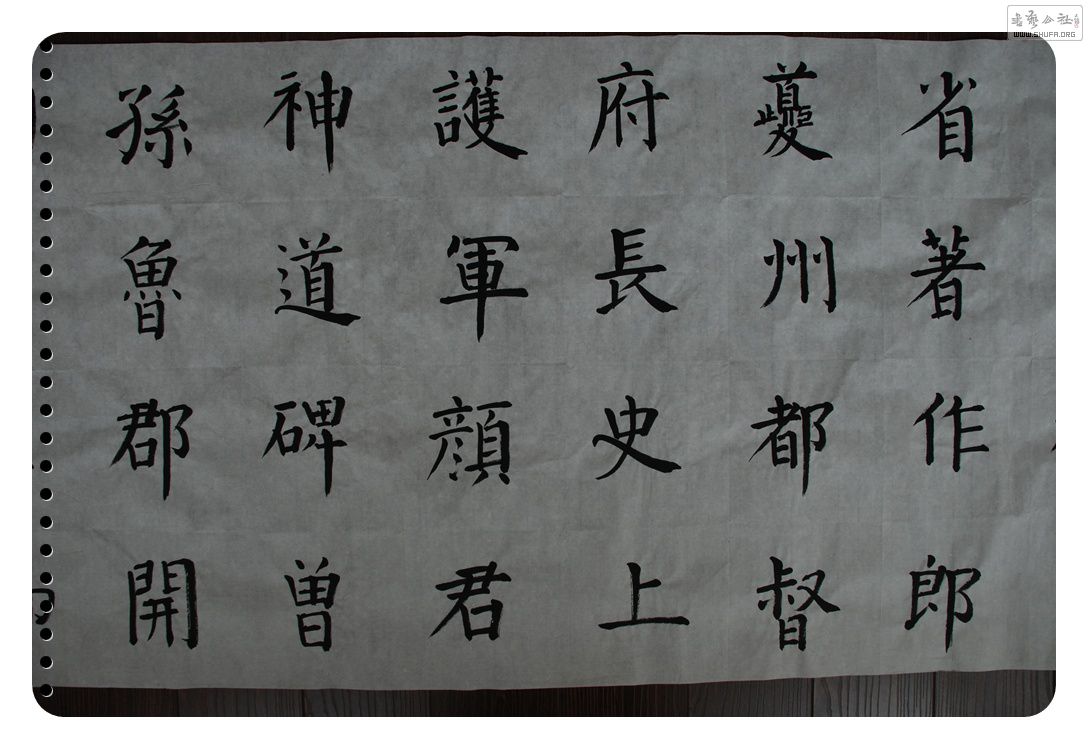 省著作郎
夔州都督
府長史上
護軍顏君
神道碑曾
孫魯郡開
书艺公社
WWW.SHUFA.ORG